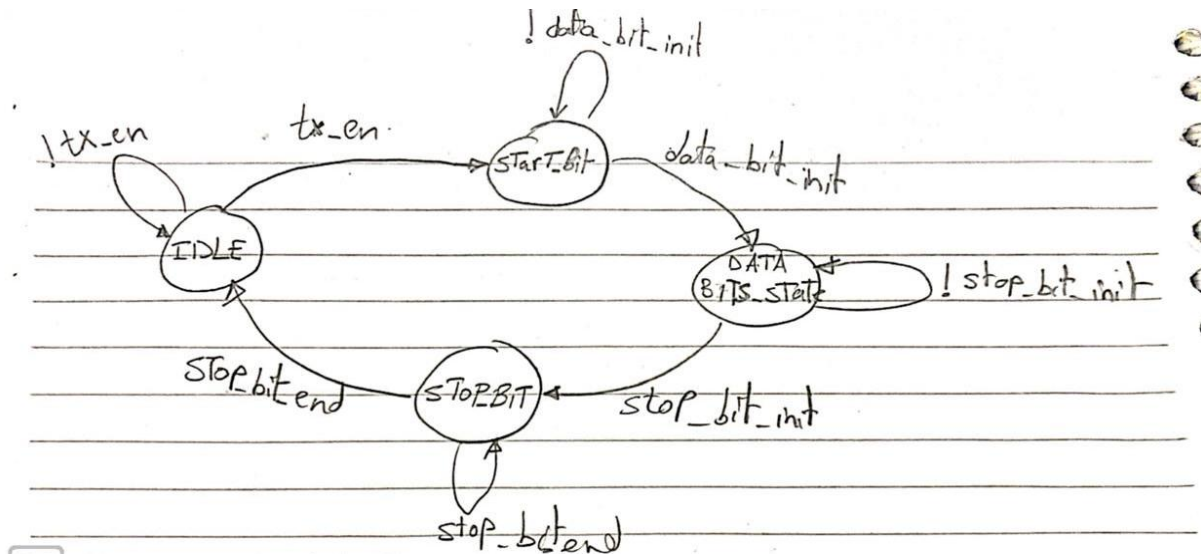 ! data_bit_init
! tx_en
tx_en
STarT_Bit
data_bit_init
IDLE
DATA
BiTS_STaTe
! stop_bit_init
STop_bit_end
STOP_BiT
stop_bit_init
stop_bit_end